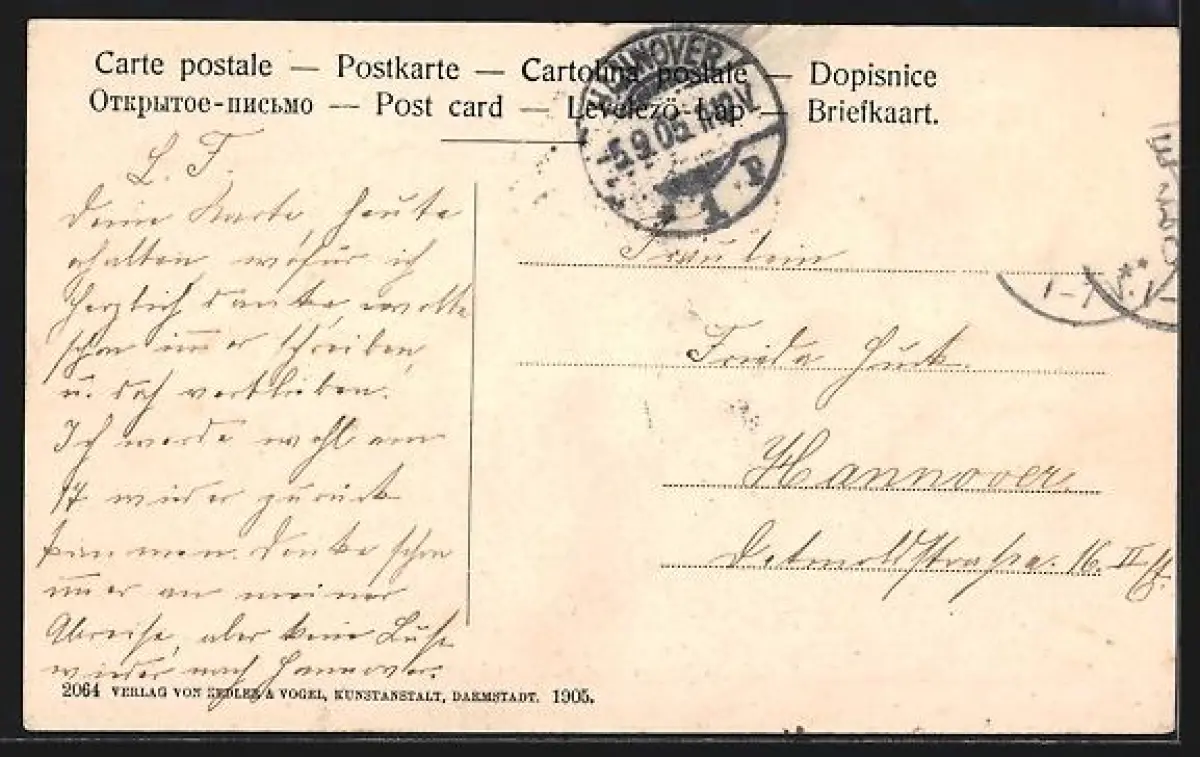 Carte postale — Postkarte — Cartolina postale — Dopisnice
Открытое-письмо — Post card — Levelező-Lap — Briefkaart.
HANNOVER
5.9.05. 11-12 V.
* 1 P
L. F.
Deine Karte, heute
erhalten, wofür ich
herzlich danke, wollte
schon immer schreiben,
u. doch verblieben.
Ich werde wohl am
17 wieder zurück
kommen. Denke schon
immer an meine
Abreise, aber keine Lust
wieder nach Hannover.
Fräulein
Frieda
Hannover
Detmoldstrasse. 16. II
2064 VERLAG VON ZEDLER & VOGEL, KUNSTANSTALT, DARMSTADT. 1905.